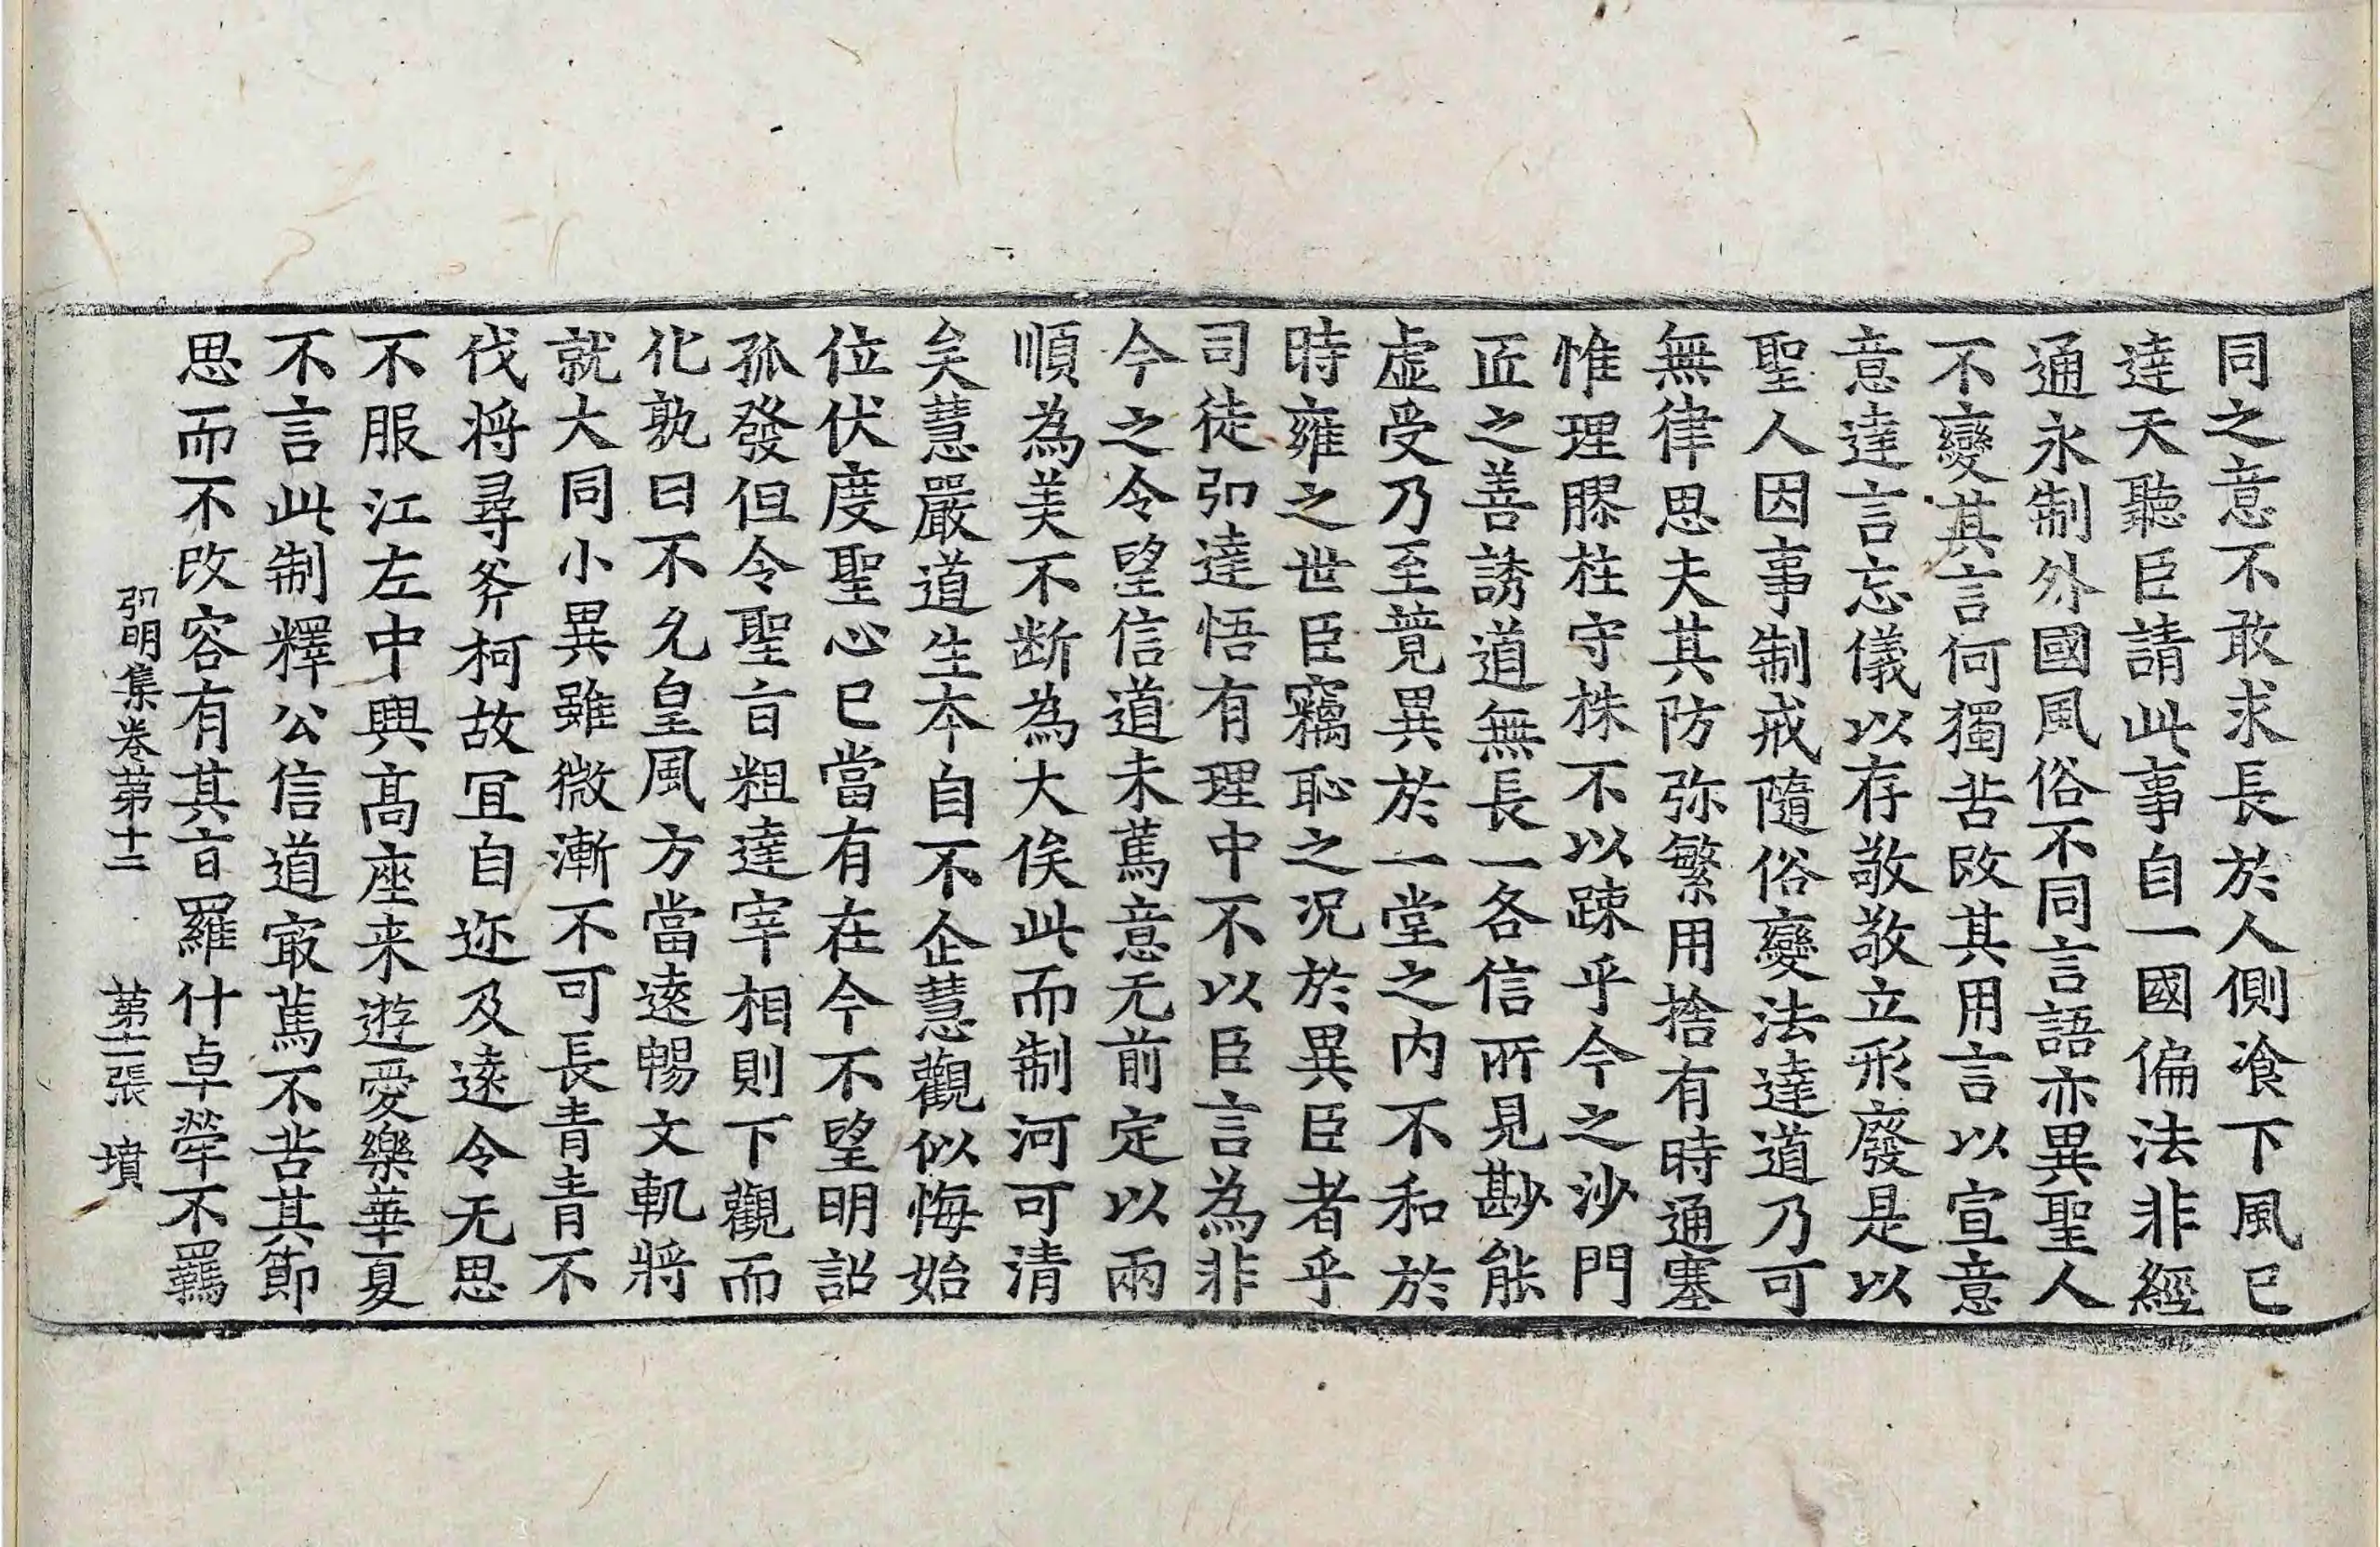 同之意不敢求長於人側飡下風已
達天聽臣請此事自一國偏法非經
通永制外國風俗不同言語亦異聖人
不變其言何獨苦改其用言以宣意
意達言忘儀以存敬敬立形廢是以
聖人因事制戒隨俗變法達道乃可
無律思夫其防弥繁用捨有時通塞
惟理膠柱守株不以踈乎今之沙門
匠之善誘道無長一各信所見尠能
虛受乃至竟異於一堂之內不和於
時雍之世臣竊恥之況於異臣者乎
司徒弘達悟有理中不以臣言為非
今之令望信道未萬意无前定以兩
順為美不斷為大俟此而制河可清
矣慧嚴道生本自不企慧觀似悔始
位伏度聖心已當有在今不望明詔
孤發但令聖旨粗達宰相則下觀而
化孰曰不允皇風方當遠暢文軌將
就大同小異雖微漸不可長青青不
伐將尋斧柯故冝自迩及遠令无思
不服江左中興高座来遊愛樂華夏
不言此制釋公信道㝡萬不苦其節
思而不改容有其旨羅什卓犖不羈
弘明集卷第十二 第十二張 墳